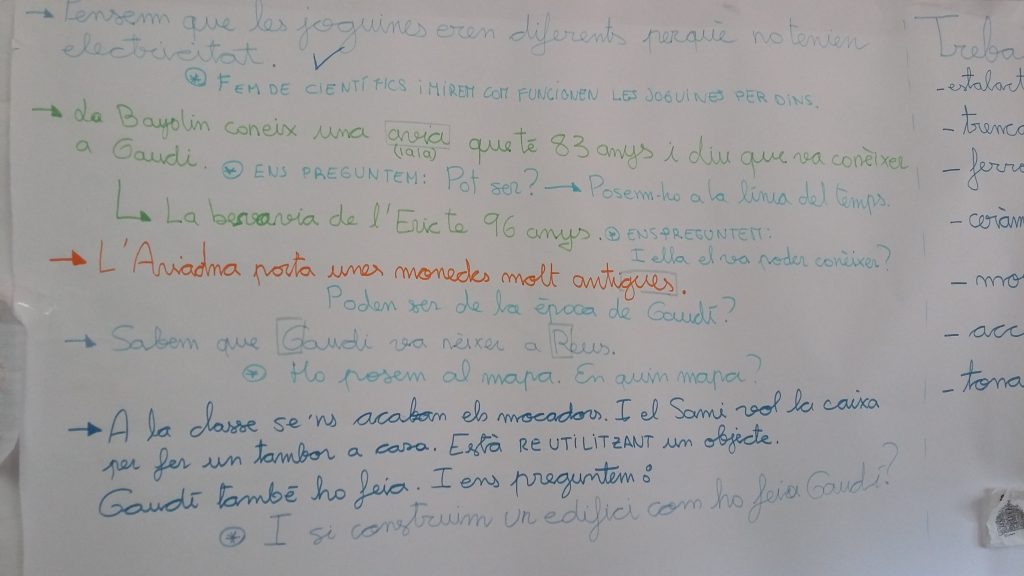 → Pensem que les joguines eren diferents perquè no tenien
electricitat. ✓
⊛ FEM DE CIENTÍFICS i MIREM COM FUNCIONEN LES JOGUINES PER DINS.
→ La Bayolin coneix una avia que té 83 anys i diu que va conèixer
(iaia)
a Gaudí. ⊛ ENS PREGUNTEM: Pot ser? → Posem-ho a la línia del temps.
↳ La besavia de l'Eric te 96 anys. ⊛ ENS PREGUNTEM:
I ella el va poder conèixer?
→ L'Ariadna porta unes monedes molt antigues.
Poden ser de la època de Gaudí?
→ Sabem que Gaudí va nèixer a Reus.
⊛ Ho posem al mapa. En quin mapa?
→ A la classe se'ns acaben els mocadors. I el Sami vol la caixa
per fer un tambor a casa. Està REUTILITZANT un objecte.
Gaudí també ho feia. I ens preguntem:
⊛ I si construim un edifici com ho feia Gaudí?
Treba
- estalact
- trenca
- ferro
- ceràm
- mo
- acc
- tona